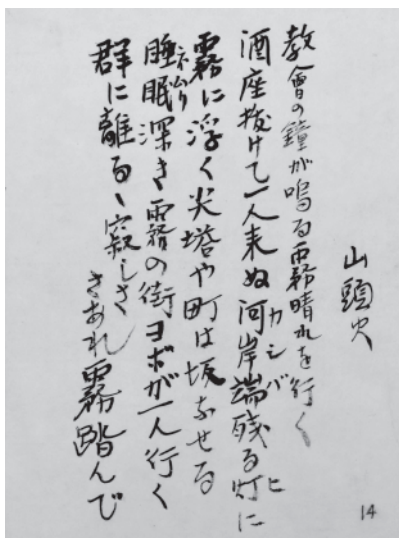 山頭火
教會の鐘が鳴る霧晴れを行く
酒座拔けて一人来ぬ河岸端残る灯に
カシバ ヒ
霧に浮く尖塔や町は坂なせる
睡眠深き霧の街ヨボが一人行く
ネムリ
群に離るゝ寂しさ さあれ霧踏んで
14